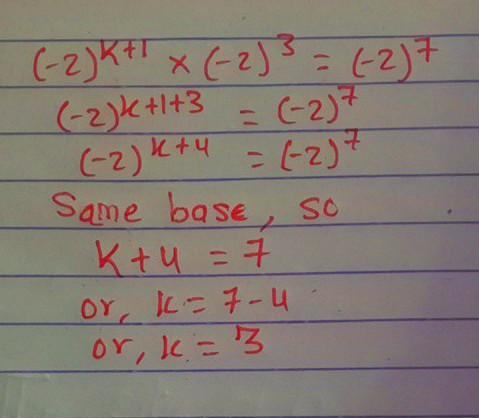 (-2)^{k+1} × (-2)^3 = (-2)^7
(-2)^{k+1+3} = (-2)^7
(-2)^{k+4} = (-2)^7
Same base, so
k+4 = 7
or, k = 7-4
or, k = 3